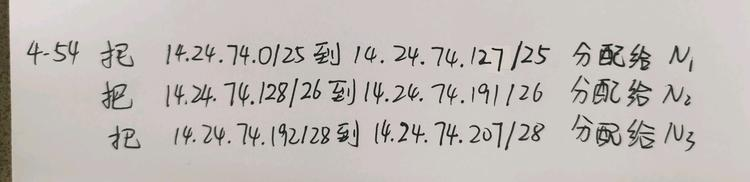 4-54 把 14.24.74.0/25 到 14.24.74.127/25 分配给 N₁
把 14.24.74.128/26 到 14.24.74.191/26 分配给 N₂
把 14.24.74.192/28 到 14.24.74.207/28 分配给 N₃